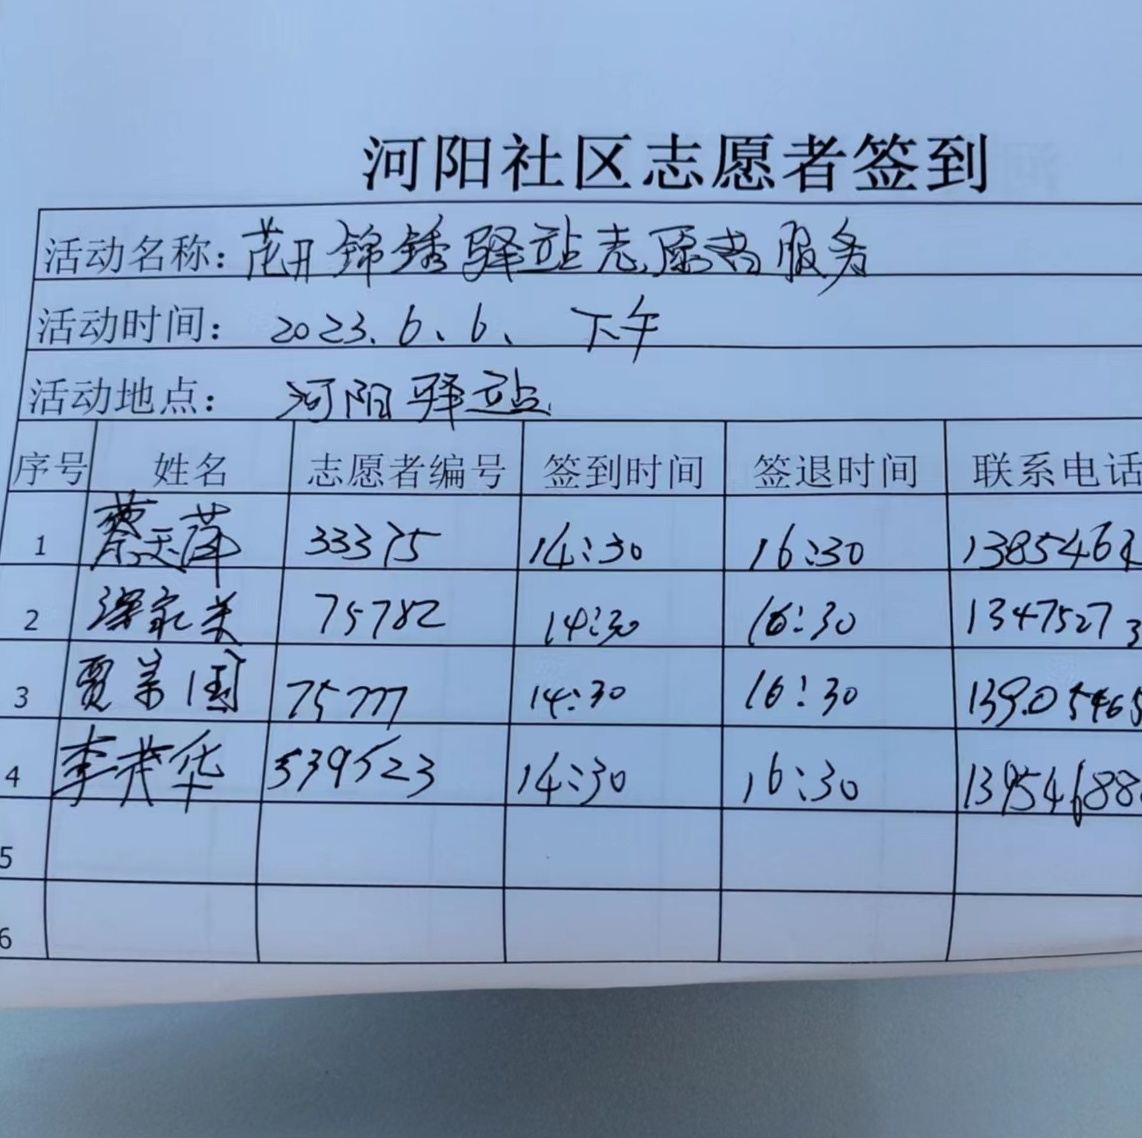 河阳社区志愿者签到
活动名称: 花开锦绣驿站志愿者服务
活动时间: 2023.6.6、下午
活动地点: 河阳驿站
序号 姓名 志愿者编号 签到时间 签退时间 联系电话
1 蔡天萍 33375 14:30 16:30 138546
2 梁家美 75782 14:30 16:30 13475273
3 贾美国 75777 14:30 16:30 13905465
4 李茂华 539523 14:30 16:30 13954688
5
6